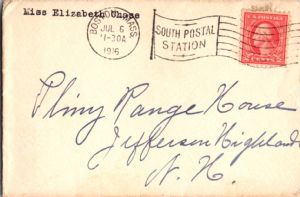 Miss Elizabeth Chase
BOSTON, MASS.
JUL 6
11-30A
1916
SOUTH POSTAL
STATION
Pliny Range House
Jefferson Highland
N. H.